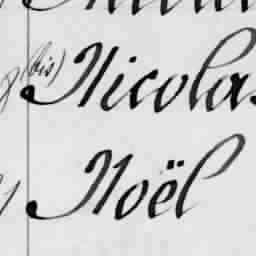 (bis) Nicolas
Noël